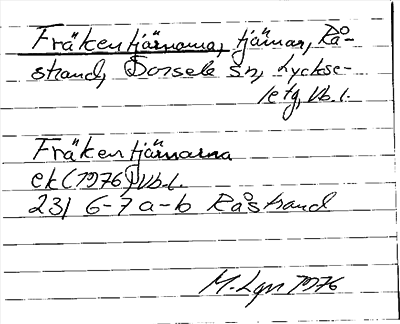 Fräkentjärnarna, tjärnar, Rå-
strand, Sorsele sn, Lyckse-
le tg, Vb. l.
Fräkentjärnarna
ek (1976) Vb. l.
23I 6-7 a-b Råstrand
M. Lgn 1976